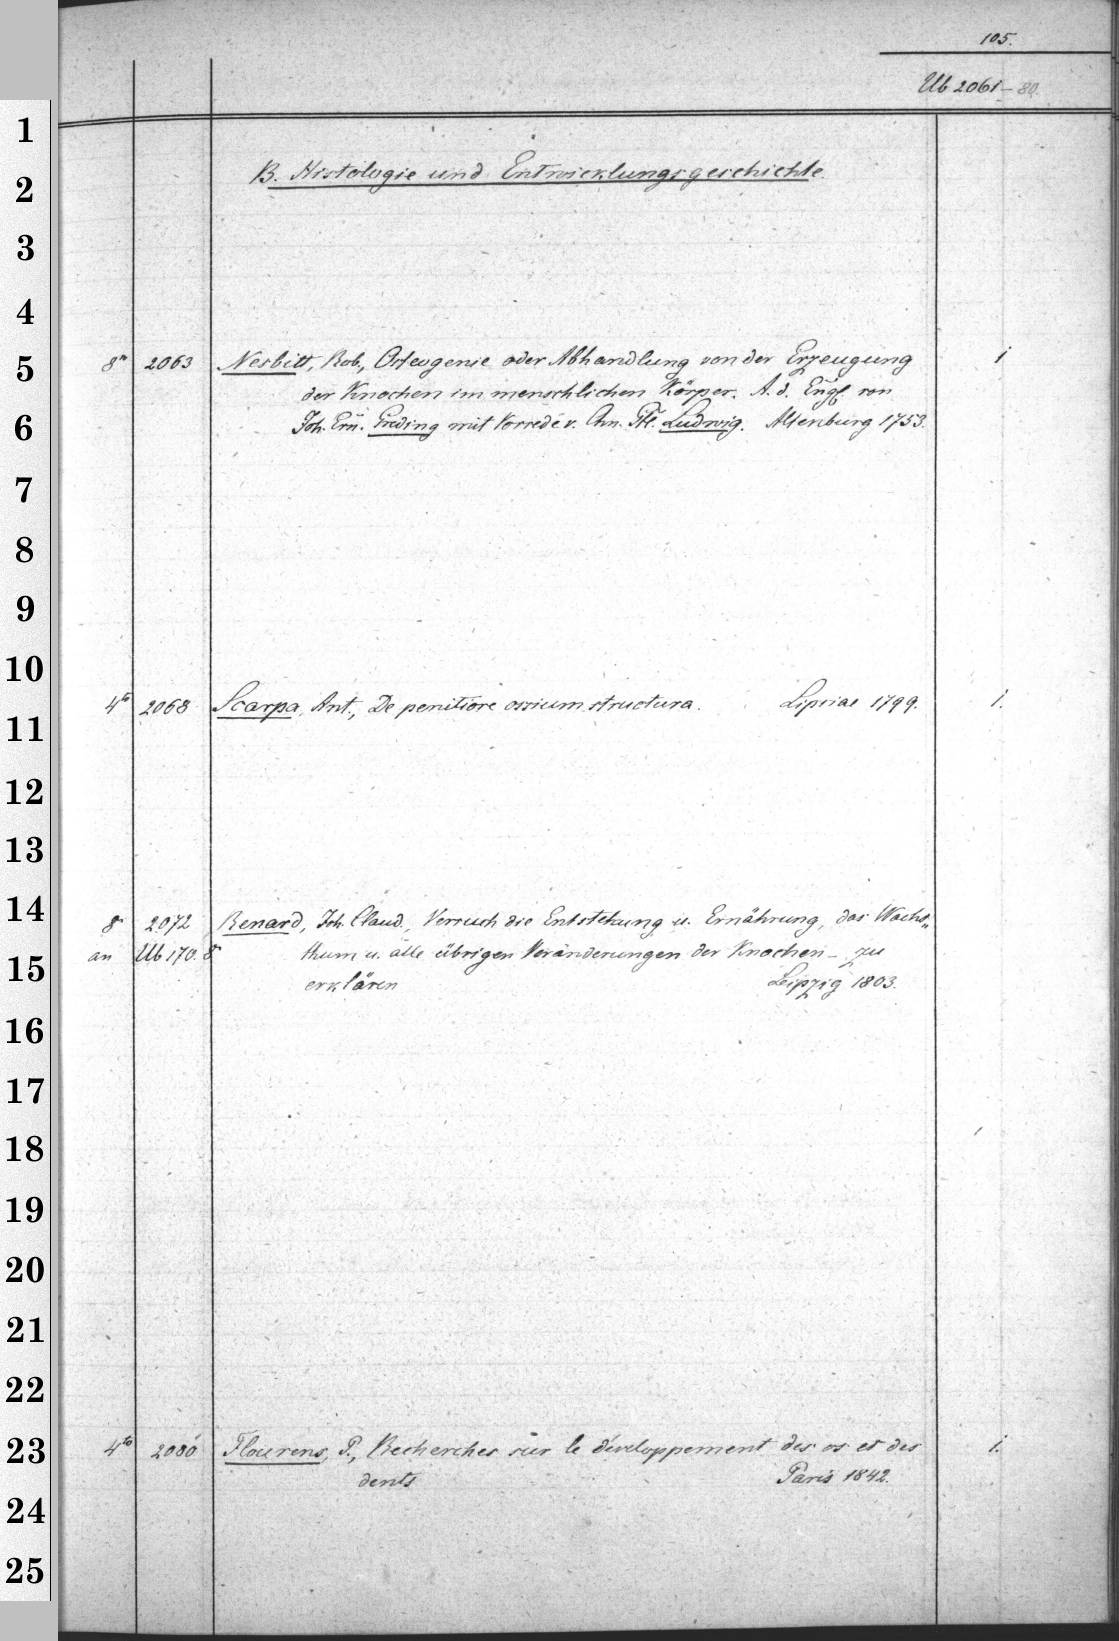 105.
Ub 2061-80.
B. Histologie und Entwicklungsgeschichte.
8° 2063 Nesbitt, Rob., Osteogenie oder Abhandlung von der Erzeugung 1
der Knochen im menschlichen Körper. A. d. Engl. von
Joh. Ern. Greding mit Vorrede v. Chn. Fr. Ludwig. Altenburg 1753.
4to 2068 Scarpa, Ant., De penitiore ossium structura. Lipsiae 1799. 1.
8° 2072 Renard, Joh. Claud., Versuch die Entstehung u. Ernährung, das Wachs„
an Ub 170. 8° thum u. alle übrigen Veränderungen der Knochen – zu
erklären Leipzig 1803.
4to 2080 Flourens, P., Recherches sur le développement des os et des 1.
dents Paris 1842.
1
2
3
4
5
6
7
8
9
10
11
12
13
14
15
16
17
18
19
20
21
22
23
24
25